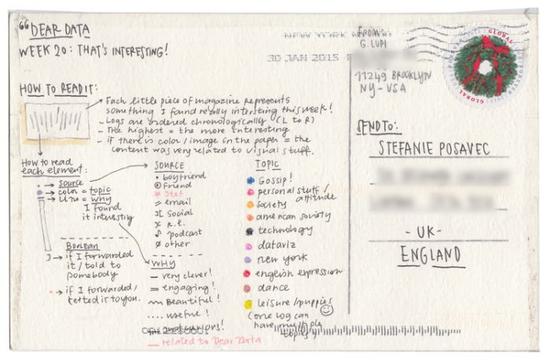 "DEAR DATA
WEEK 20: THAT'S INTERESTING!
HOW TO READ IT:
Each little piece of magazine represents
something I found really interesting this week!
- Logs are ordered chronologically (L to R)
- The highest = the more interesting
- if there is color/image in the paper = the
content was very related to visual stuff.
How to read
each element:
source
color = topic
line = why
I found
it interesting
Boolean
if I forwarded
it / told to
somebody
if I forwarded /
tell it to you.
SOURCE
boyfriend
friend
Stef
email
social
r.l.
podcast
other
WHY
very clever!
engaging!
Beautiful!
useful!
related to Dear Data
TOPIC
Gossip!
personal stuff / attitude
society
american society
technology
dataviz
new york
english expression
dance
leisure/puppies
(one log can
have multiple
topics)
NEW YORK
30 JAN 2015
FROM:
G. LUPI
11249 BROOKLYN
NY - USA
GLOBAL
SEND TO:
STEFANIE POSAVEC
- UK -
ENGLAND